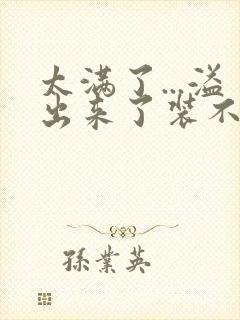 太满了…溢
出来了装不
孫業英